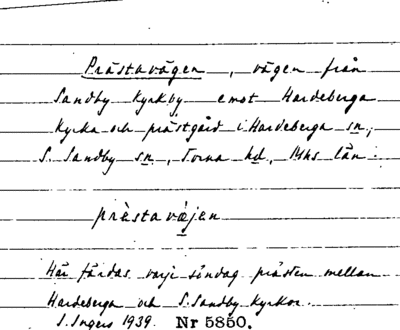 Prästavägen, vägen från
Sandby Kyrkby emot Hardeberga
Kyrka och prästgård i Hardeberga sn,
S. Sandby sn, Torna hd, Mhs län.
prästaväjen
Här färdas varje söndag prästen mellan
Hardeberga och S. Sandby kyrkor.
S. Ingers 1939. Nr 5850.